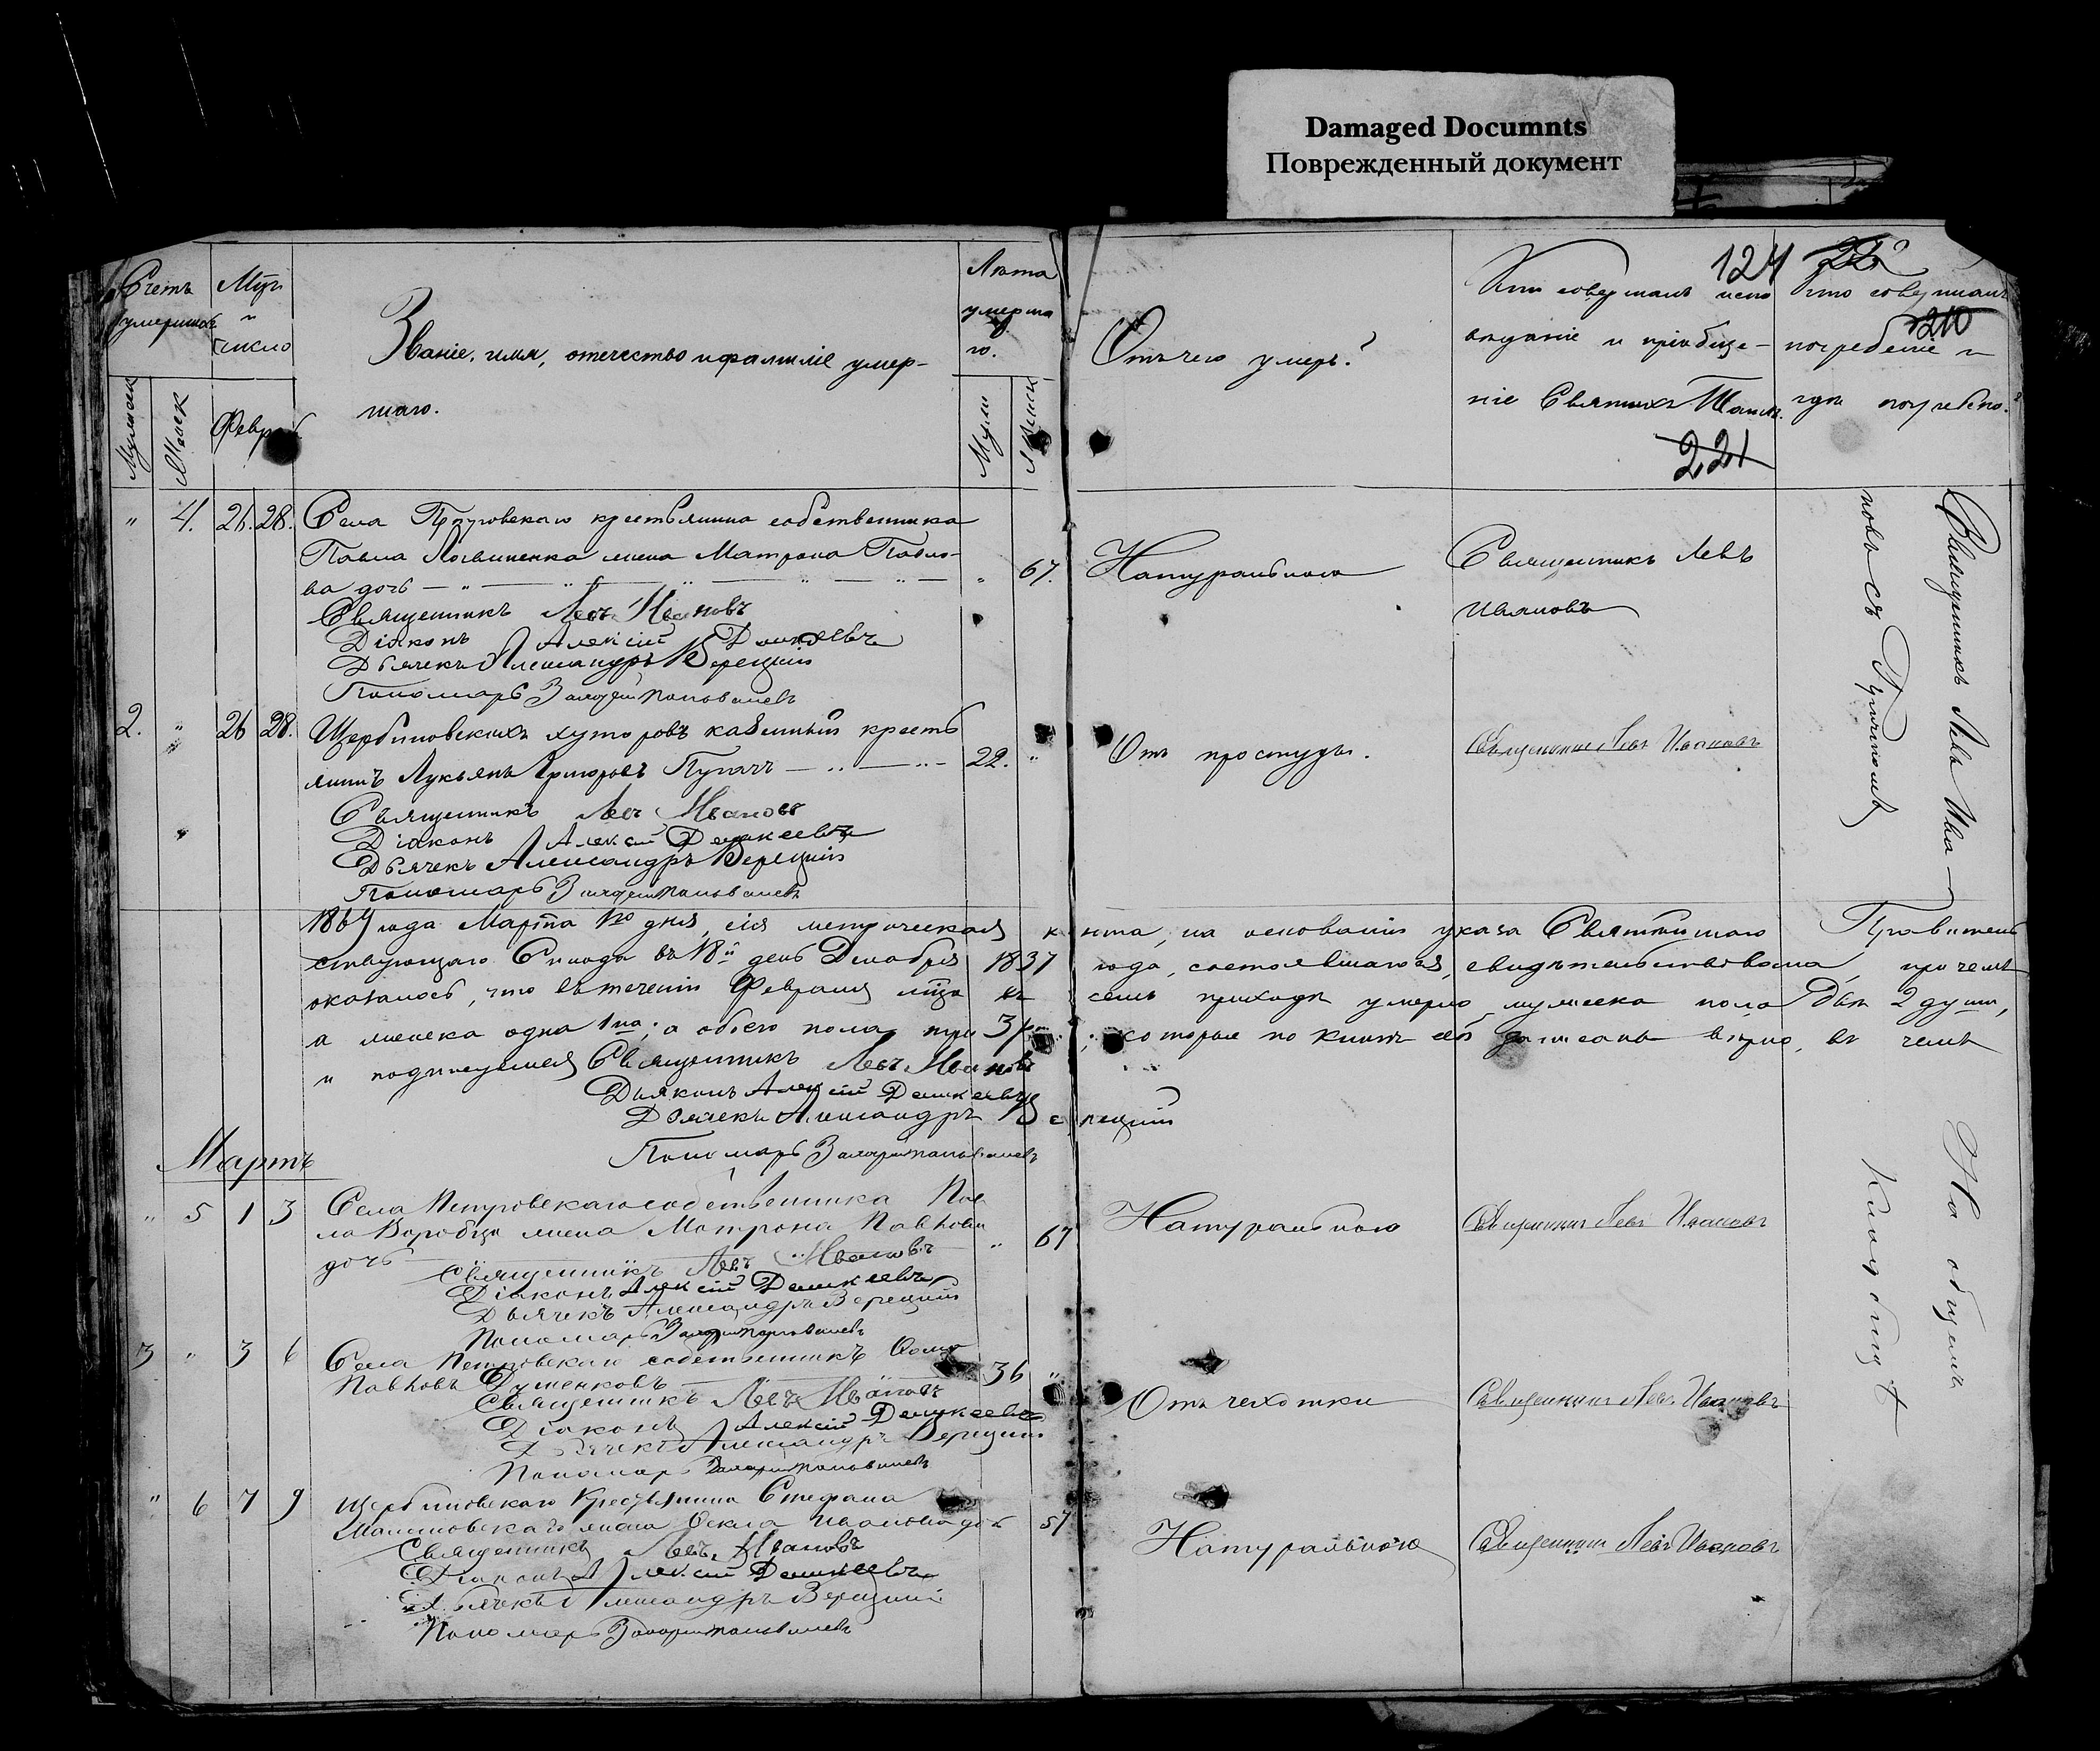 Damaged Documnts
Поврежденный документ
124
210
221
Счетъ умершихъ
Мужеск
Женск
Мцъ и число
Феврал
Званіе, имя, отчество и фамиліе умер-
шаго.
Лѣта умерша го.
Муж
Женск
Отъ чего умеръ?
Кто совершалъ испо
вѣданіе и пріобще-
ніе Святыхъ Таинъ.
Кто совершалъ
погребеніе и
гдѣ погребено.
" 4. 26. 28. Села Петровскаго крестьянина собственника
Павла жена Матрона Павло-
ва дочь " 67. Натуральною Священникъ Левъ
Ивановъ
Священникъ Левъ Ивановъ
Діаконъ Алексій
Дьячекъ Александръ Верецкій
Пономарь
2. " 26 28. Щербиновскихъ хуторовъ казенный кресть
янинъ Лукьянъ Григорьевъ Пугачъ 22. " Отъ простуды. Священникъ Левъ Ивановъ
Священникъ Левъ Ивановъ
Діаконъ Алексій
Дьячекъ Александръ Верецкій
Пономарь
Священникъ Левъ Ива-
новъ съ Причтомъ
1869 года Марта 1го дня, сія метрическая книга, на основаніи указа Святѣйшаго Правитель
ствующаго Синода въ 18й день Декабря 1837 года, состоявшагося, свидѣтельствована, при чемъ
оказалось, что въ теченіи Февраля мца въ семъ приходѣ умерло мужеска пола двѣ 2 души,
а женска одна 1на; а обоего пола три 3 ; которые по книгѣ сей записаны вѣрно, въ чемъ
и подписуемся Священникъ Левъ Ивановъ
Діаконъ Алексій
Дьячекъ Александръ Верецкій
Пономарь
Мартъ
" 5 1 3 Села Петровскаго собственника Пав
ла Воробца жена Матрона Павлова
дочь " 67 Натуральною Священникъ Левъ Ивановъ
Священникъ Левъ Ивановъ
Діаконъ Алексій
Дьячекъ Александръ Верецкій
Пономарь
3 " 3 6 Села Петровскаго собственникъ Ѳома
Павловъ Думенковъ 36 " Отъ чехотки Священникъ Левъ Ивановъ
Священникъ Левъ Ивановъ
Діаконъ Алексій
Дьячекъ Александръ Верецкій
Пономарь
" 6 7 9 Щербиновскаго Крестьянина Стефана
Малиновскаго жена Ѳекла Иванова дочь 57 Натуральною Священникъ Левъ Ивановъ
Священникъ Левъ Ивановъ
Діаконъ Алексій
Дьячекъ Александръ Верецкій
Пономарь
На общемъ
Кладбищѣ